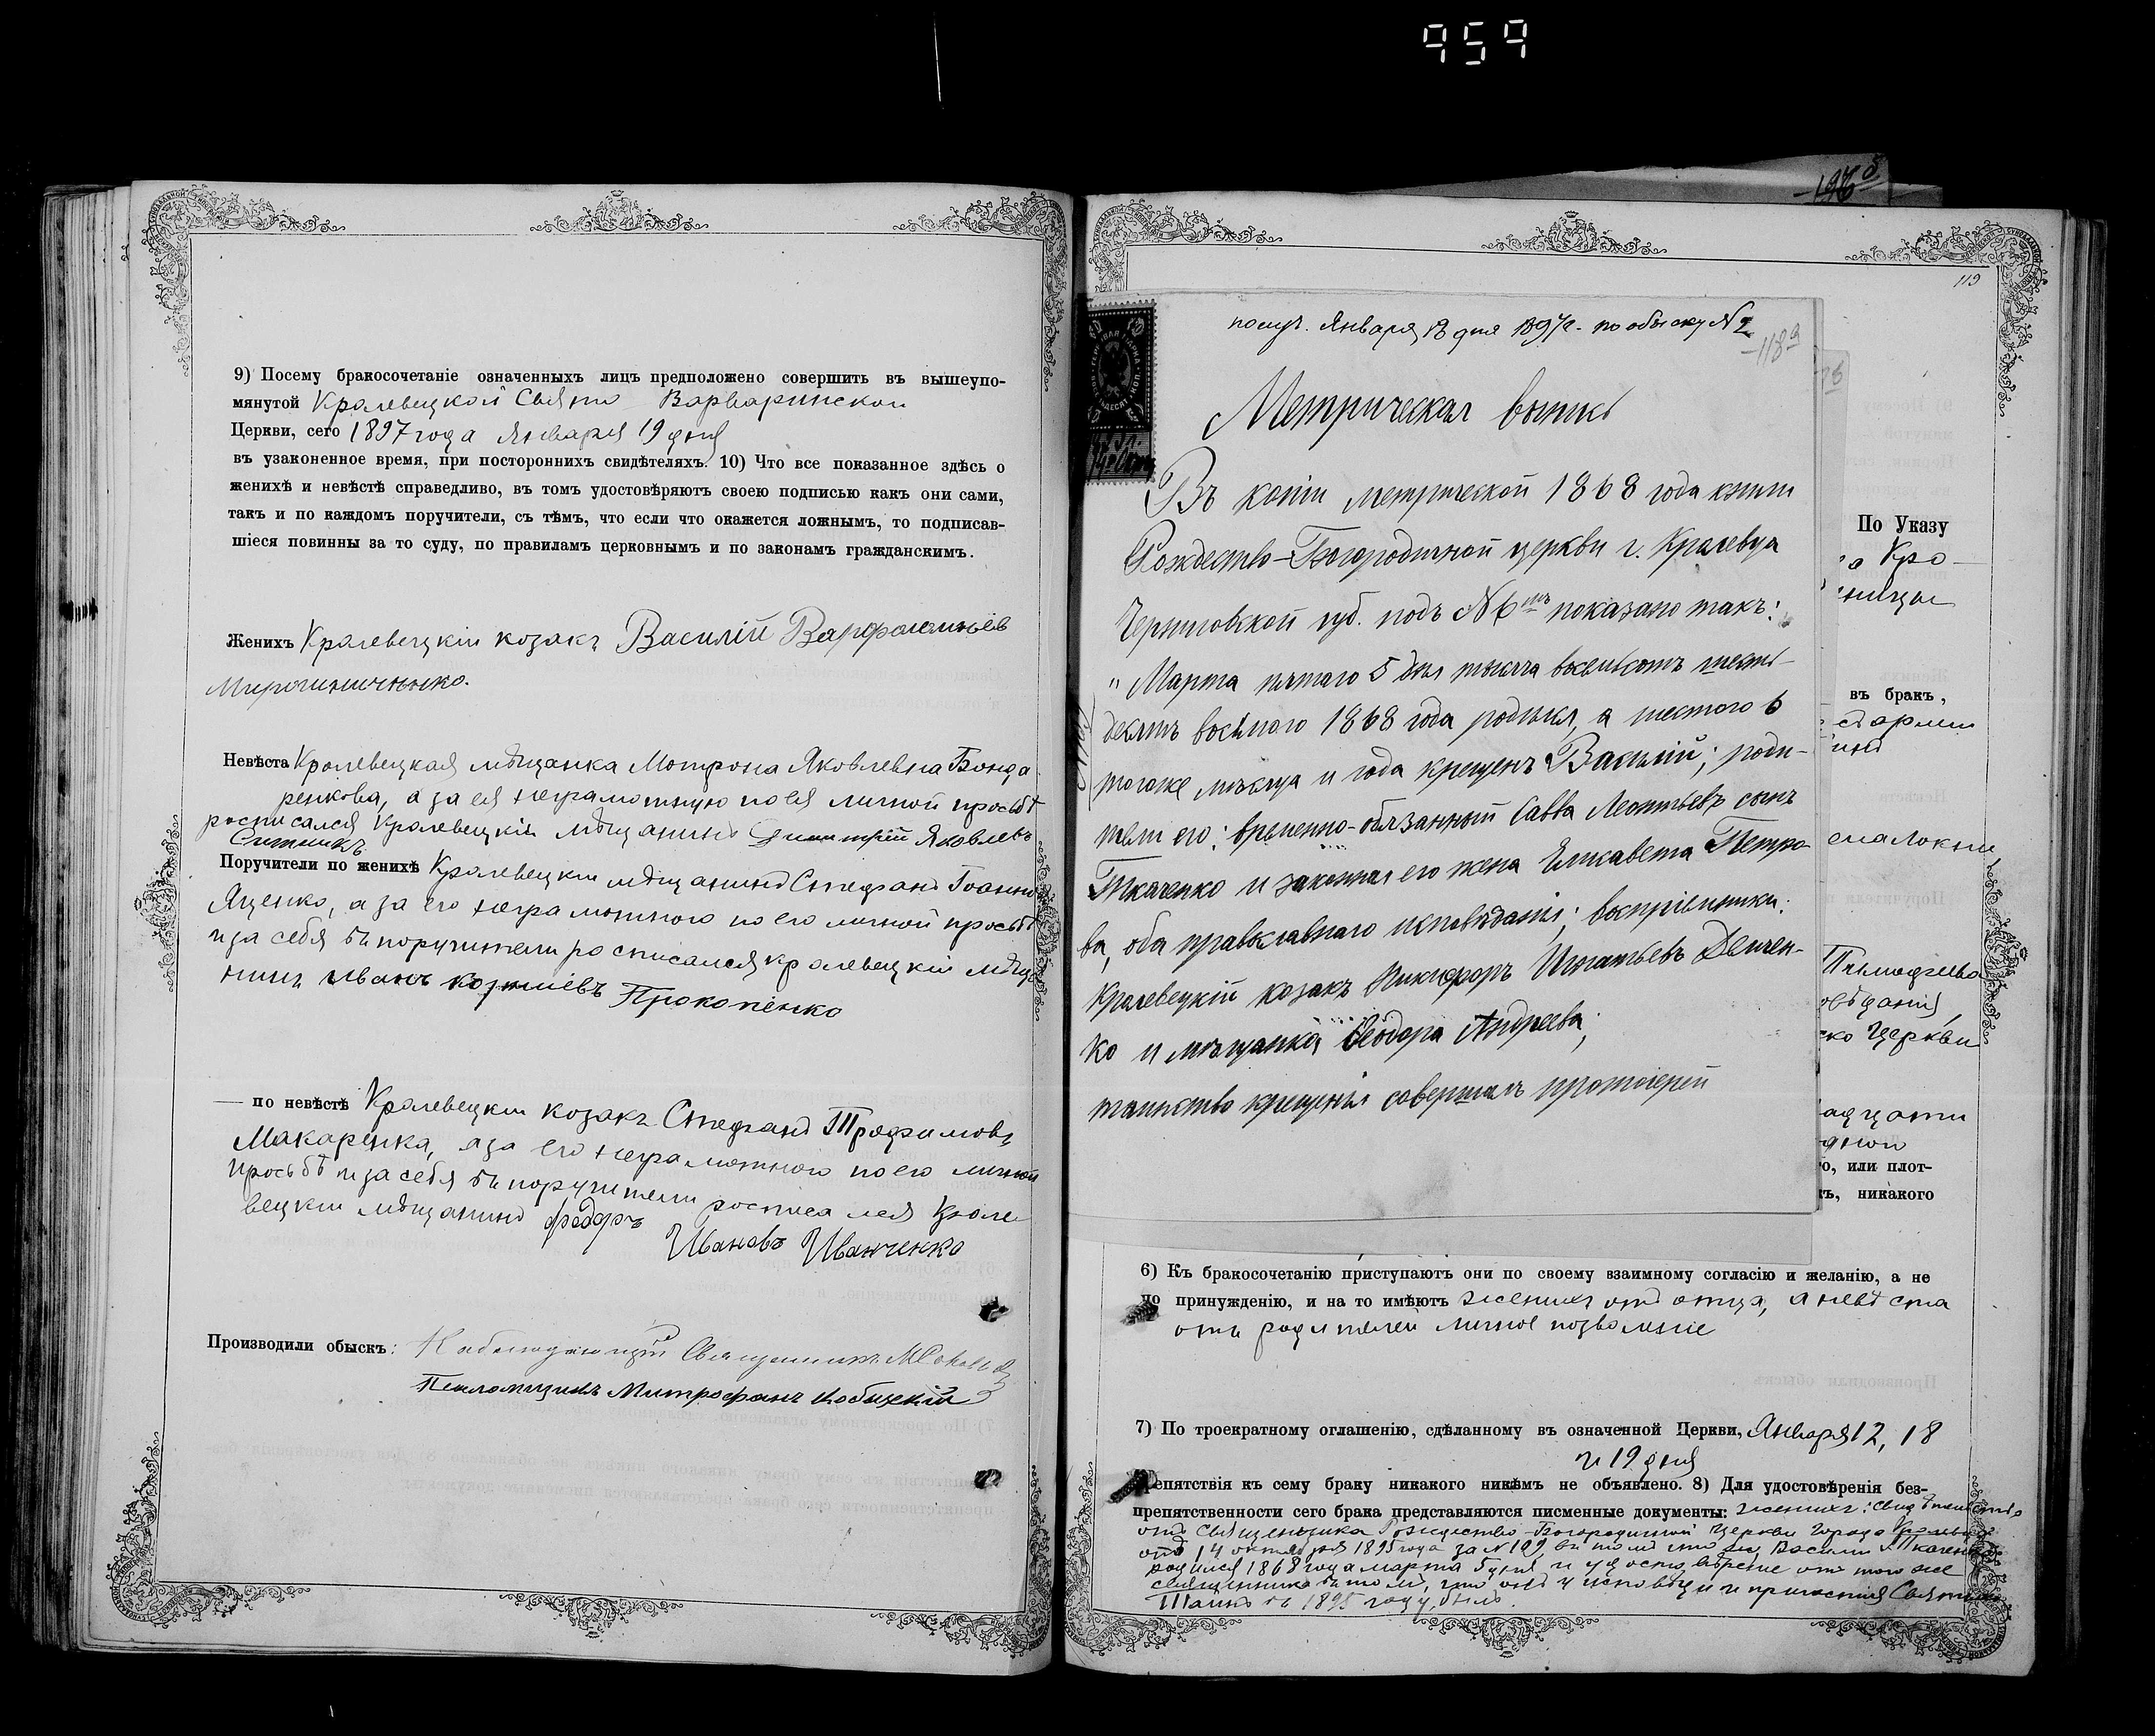 959
9) Посему бракосочетаніе означенныхъ лицъ предположено совершить въ вышеупо-
мянутой Кролевецкой Свято Варваринской
Церкви, сего 1897 года Января 19 дня
въ узаконенное время, при постороннихъ свидѣтеляхъ. 10) Что все показанное здѣсь о
женихѣ и невѣстѣ справедливо, въ томъ удостовѣряютъ своею подписью какъ они сами,
такъ и по каждомъ поручители, съ тѣмъ, что если что окажется ложнымъ, то подписав-
шіеся повинны за то суду, по правиламъ церковнымъ и по законамъ гражданскимъ.
Женихъ Кролевецкій козакъ Василій Варфоломѣевъ
Мирошниченко.
Невѣста Кролевецкая мѣщанка Мотрона Яковлевна Бонда
ренкова, а за ея неграмотную по ея личной просьбѣ
росписался Кролевецкій мѣщанинъ Димитрій Яковлевъ
Ситникъ
Поручители по женихѣ Кролевецкій мѣщанинъ Стефанъ Іоанновъ
Яценко, а за его неграмотного по его личной просьбѣ
и за себя въ поручители росписался кролевецкій мѣща
нинъ Иванъ Прокопенко
— по невѣстѣ Кролевецкій козакъ Стефанъ Трофимовъ
Макаренка, а за его неграмотного по его личной
просьбѣ и за себя въ поручители росписался Кроле
вецкій мѣщанинъ Федоръ
Ивановъ Иванченко
Производили обыскъ: Наблюдающій Священникъ М.
Псаломщикъ Митрофанъ
119
получ. Января 18 дня 1897 г. по обыску № 2
118
Метрическая выпись
Въ копіи метрической 1868 года книги
Рождество-Богородичной церкви г. Кролевца
Черниговской губ. подъ № 6мъ показано такъ:
" Марта пятаго 5 дня тысяча восемьсотъ шесть-
десятъ восьмого 1868 года родился, а шестого 6
тогоже мѣсяца и года крещенъ Василій; роди-
тели его: временно-обязанный Савва Леонтьевъ сынъ
Ткаченко и законная его жена Елисавета Петро
ва, оба православнаго исповѣданія; воспріемники:
Кролевецкій козакъ Никифоръ Игнатьевъ Демен-
ко и мѣщанка Ѳеодора Андреева;
таинство крещенія совершалъ протоіерей
По Указу
Кро-
въ бракъ,
Тимофѣева
Церкви
о, или плот-
ъ, никакого
6) Къ бракосочетанію приступаютъ они по своему взаимному согласію и желанію, а не
по принужденію, и на то имѣютъ женихъ отъ отца, а невѣста
отъ родителей личное позволеніе
7) По троекратному оглашенію, сдѣланному въ означенной Церкви, Января 12, 18
и 19 дня
препятствія къ сему браку никакого никѣмъ не объявлено. 8) Для удостовѣренія без-
препятственности сего брака представляются писменные документы: женихъ: свидѣтельство
отъ священника Рождество-Богородичной Церкви города Кролевца
отъ 14 октября 1895 года за № 199 въ томъ что Василій Ткаченко
родился 1868 года марта 5 дня и удостовѣреніе отъ того же
священника въ томъ, что онъ у исповѣди и причастія Святыхъ
Таинъ въ 1895 году былъ.